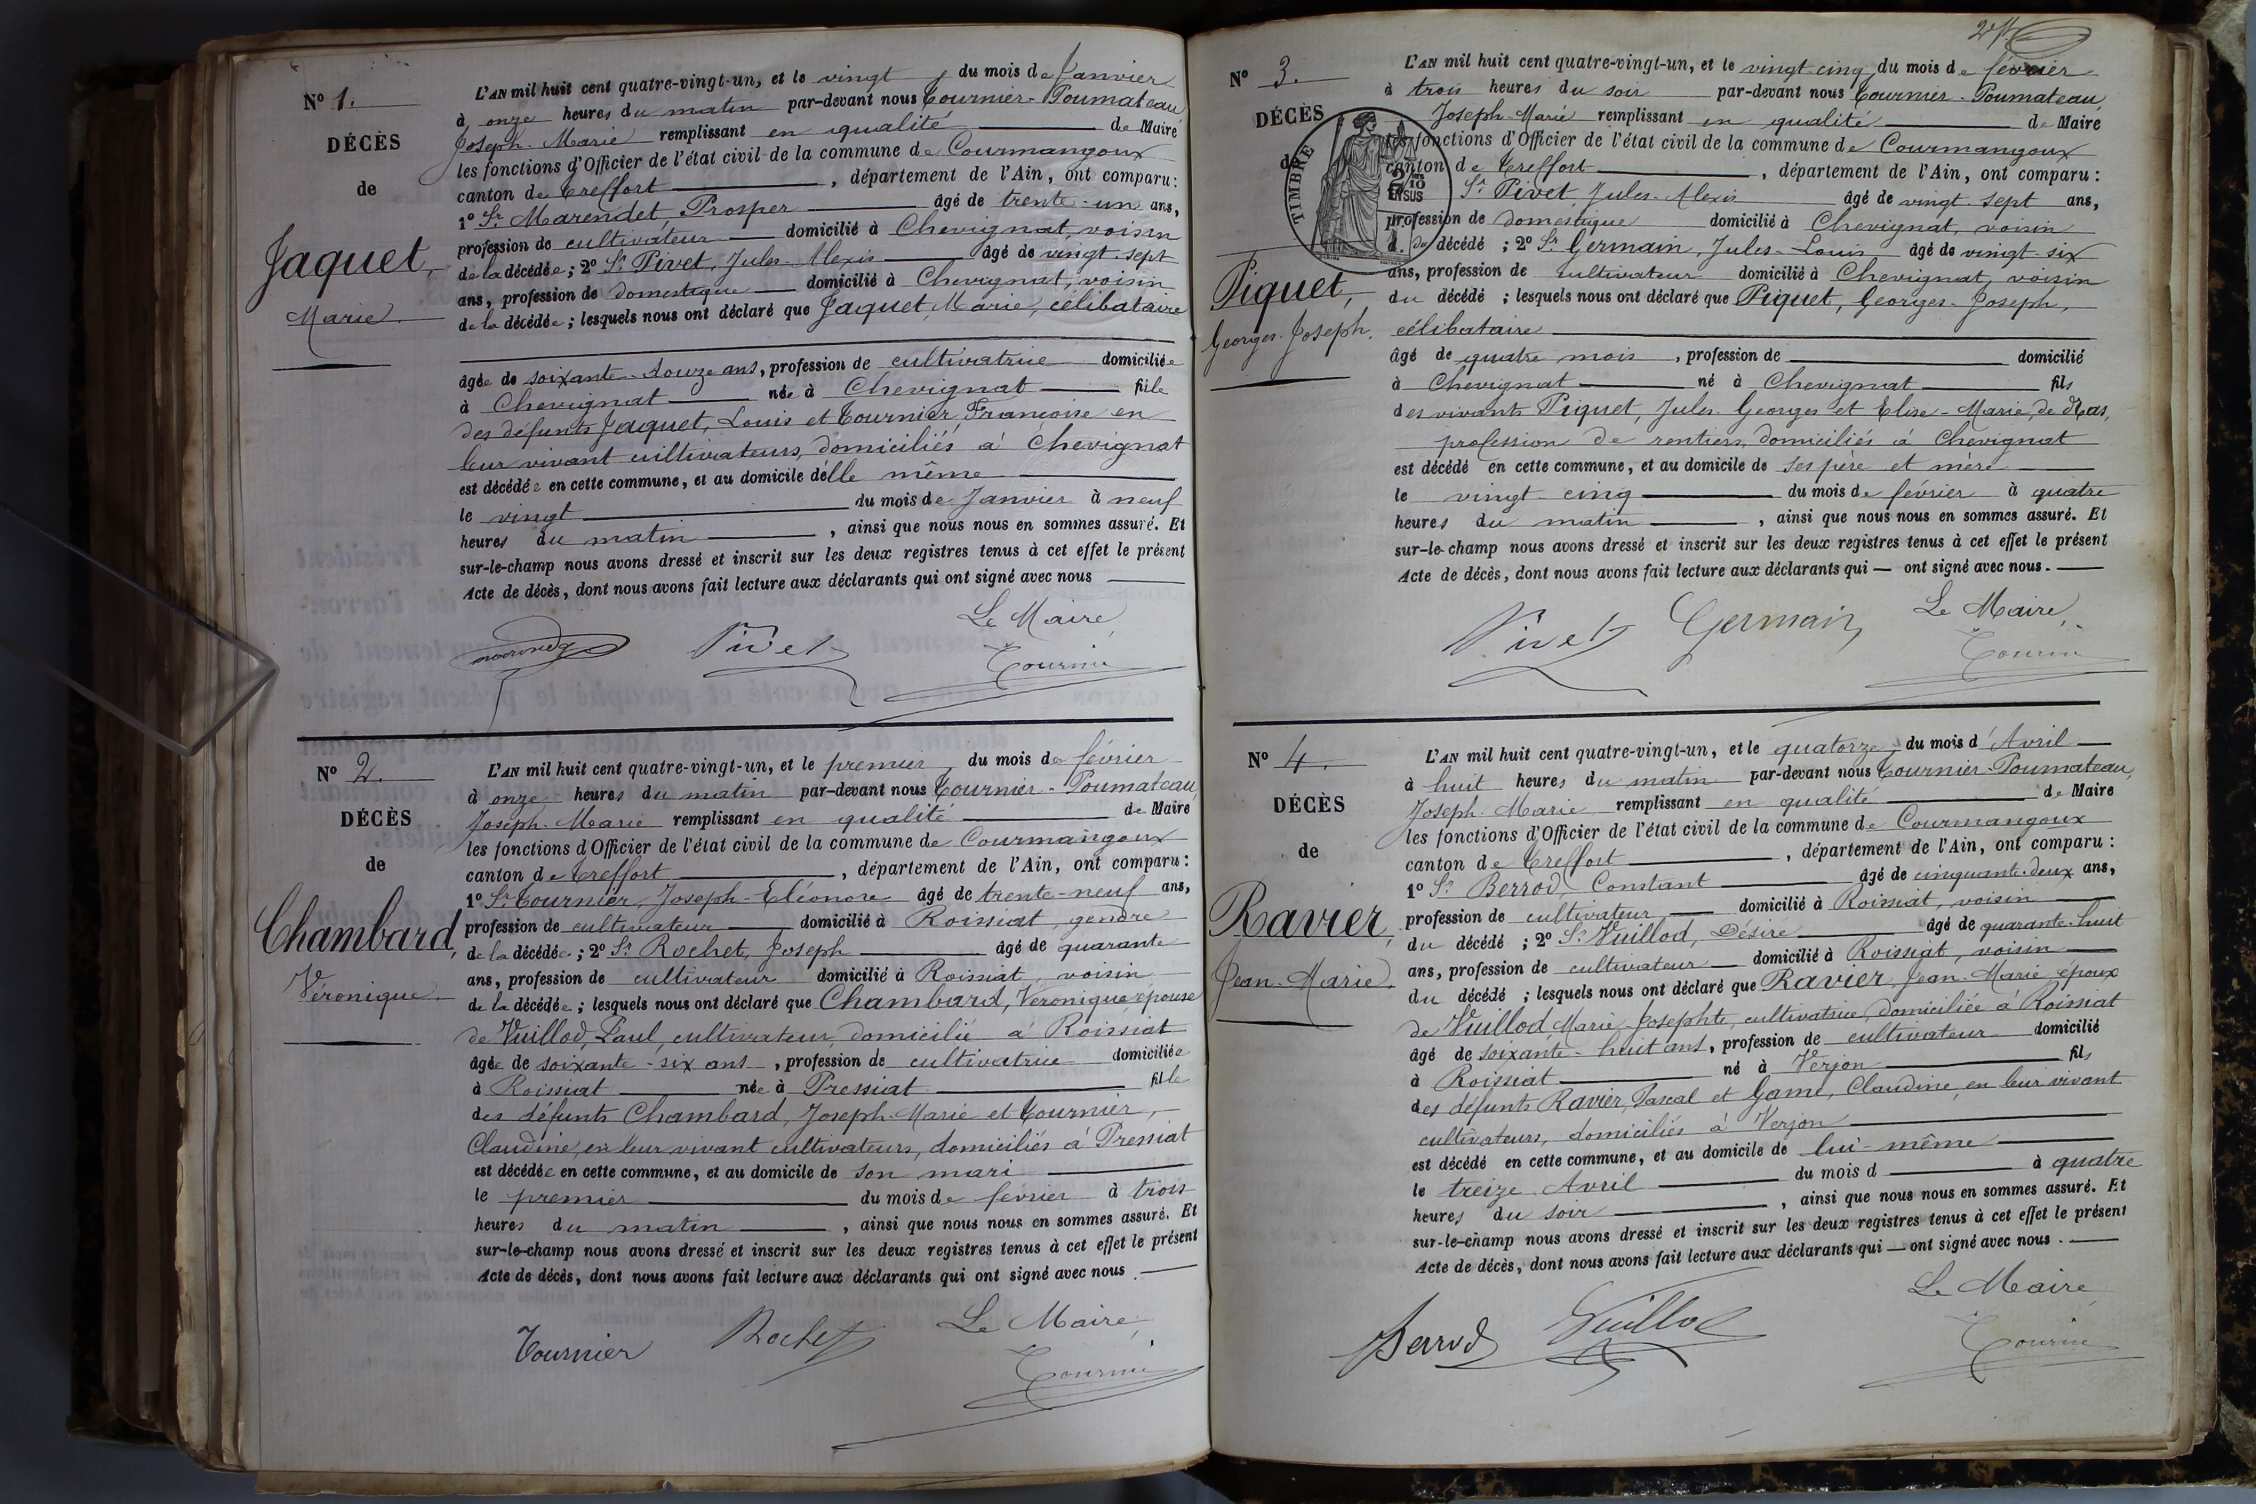 N° 1.
DÉCÈS
de
Jaquet,
Marie.
L'AN mil huit cent quatre-vingt-un, et le vingt, du mois de Janvier
à onze heures du matin par-devant nous Tournier-Poumateau,
Joseph-Marie remplissant en qualité de Maire
les fonctions d'Officier de l'état civil de la commune de Courmangoux
canton de Treffort, département de l'Ain, ont comparu:
1° Sr. Marendet, Prosper âgé de trente-un ans,
profession de cultivateur domicilié à Chevignat, voisin
de la décédée; 2° Sr Pivet, Jules-Alexis âgé de vingt-sept
ans, profession de domestique domicilié à Chevignat, voisin
de la décédée; lesquels nous ont déclaré que Jaquet, Marie, célibataire
âgée de soixante-douze ans, profession de cultivatrice domiciliée
à Chevignat née à Chevignat fille
des défunts Jaquet, Louis et Tournier, Françoise en
leur vivant cultivateurs, domiciliés à Chevignat
est décédée en cette commune, et au domicile d'elle même
le vingt du mois de Janvier à neuf
heures du matin, ainsi que nous nous en sommes assuré. Et
sur-le-champ nous avons dressé et inscrit sur les deux registres tenus à cet effet le présent
Acte de décès, dont nous avons fait lecture aux déclarants qui ont signé avec nous
Le Maire,
Pivet
N° 2.
DÉCÈS
de
Chambard,
Véronique.
L'AN mil huit cent quatre-vingt-un, et le premier, du mois de février
à onze heures du matin par-devant nous Tournier-Poumateau,
Joseph-Marie remplissant en qualité de Maire
les fonctions d'Officier de l'état civil de la commune de Courmangoux
canton de Treffort, département de l'Ain, ont comparu:
1° Sr. Tournier, Joseph-Eléonore âgé de trente-neuf ans,
profession de cultivateur domicilié à Roissiat, gendre
de la décédée; 2° Sr Rochet, Joseph âgé de quarante
ans, profession de cultivateur domicilié à Roissiat, voisin
de la décédée; lesquels nous ont déclaré que Chambard, Véronique, épouse
de Vuillod, Paul, cultivateur, domicilié à Roissiat
âgée de soixante-six ans, profession de cultivatrice domiciliée
à Roissiat née à Pressiat fille
des défunts Chambard, Joseph-Marie et Tournier,
Claudine, en leur vivant cultivateurs, domiciliés à Pressiat
est décédée en cette commune, et au domicile de son mari
le premier du mois de février à trois
heures du matin, ainsi que nous nous en sommes assuré. Et
sur-le-champ nous avons dressé et inscrit sur les deux registres tenus à cet effet le présent
Acte de décès, dont nous avons fait lecture aux déclarants qui ont signé avec nous.
Le Maire,
Tournier Rochet
N° 3.
DÉCÈS
de
TIMBRE
2/10
EN SUS
Piquet,
Georges-Joseph.
L'AN mil huit cent quatre-vingt-un, et le vingt-cinq, du mois de février
à trois heures du soir par-devant nous Tournier-Poumateau,
Joseph-Marie remplissant en qualité de Maire
les fonctions d'Officier de l'état civil de la commune de Courmangoux
canton de Treffort, département de l'Ain, ont comparu:
Sr. Pivet, Jules-Alexis âgé de vingt-sept ans,
profession de domestique domicilié à Chevignat, voisin
du décédé; 2° Sr Germain, Jules-Louis âgé de vingt-six
ans, profession de cultivateur domicilié à Chevignat, voisin
du décédé; lesquels nous ont déclaré que Piquet, Georges-Joseph,
célibataire
âgé de quatre mois, profession de domicilié
à Chevignat né à Chevignat fils
des vivants Piquet, Jules-Georges et Elise-Marie, de Mas,
profession de rentiers, domiciliés à Chevignat
est décédé en cette commune, et au domicile de ses père et mère
le vingt-cinq du mois de février à quatre
heures du matin, ainsi que nous nous en sommes assuré. Et
sur-le-champ nous avons dressé et inscrit sur les deux registres tenus à cet effet le présent
Acte de décès, dont nous avons fait lecture aux déclarants qui — ont signé avec nous.
Le Maire,
Pivet Germain
N° 4.
DÉCÈS
de
Ravier,
Jean-Marie.
L'AN mil huit cent quatre-vingt-un, et le quatorze, du mois d'Avril
à huit heures du matin par-devant nous Tournier-Poumateau,
Joseph-Marie remplissant en qualité de Maire
les fonctions d'Officier de l'état civil de la commune de Courmangoux
canton de Treffort, département de l'Ain, ont comparu:
1° Sr. Berrod Constant âgé de cinquante-deux ans,
profession de cultivateur domicilié à Roissiat, voisin
du décédé; 2° Sr Vuillod, Désiré âgé de quarante-huit
ans, profession de cultivateur domicilié à Roissiat, voisin
du décédé; lesquels nous ont déclaré que Ravier, Jean-Marie époux
de Vuillod Marie-Josephte, cultivatrice, domiciliée à Roissiat
âgé de soixante-huit ans, profession de cultivateur domicilié
à Roissiat né à Verjon fils
des défunts Ravier, Pascal et Game, Claudine, en leur vivant
cultivateurs, domiciliés à Verjon
est décédé en cette commune, et au domicile de lui-même
le treize Avril du mois d à quatre
heures du soir, ainsi que nous nous en sommes assuré. Et
sur-le-champ nous avons dressé et inscrit sur les deux registres tenus à cet effet le présent
Acte de décès, dont nous avons fait lecture aux déclarants qui — ont signé avec nous.
Le Maire
Berrod Vuillod